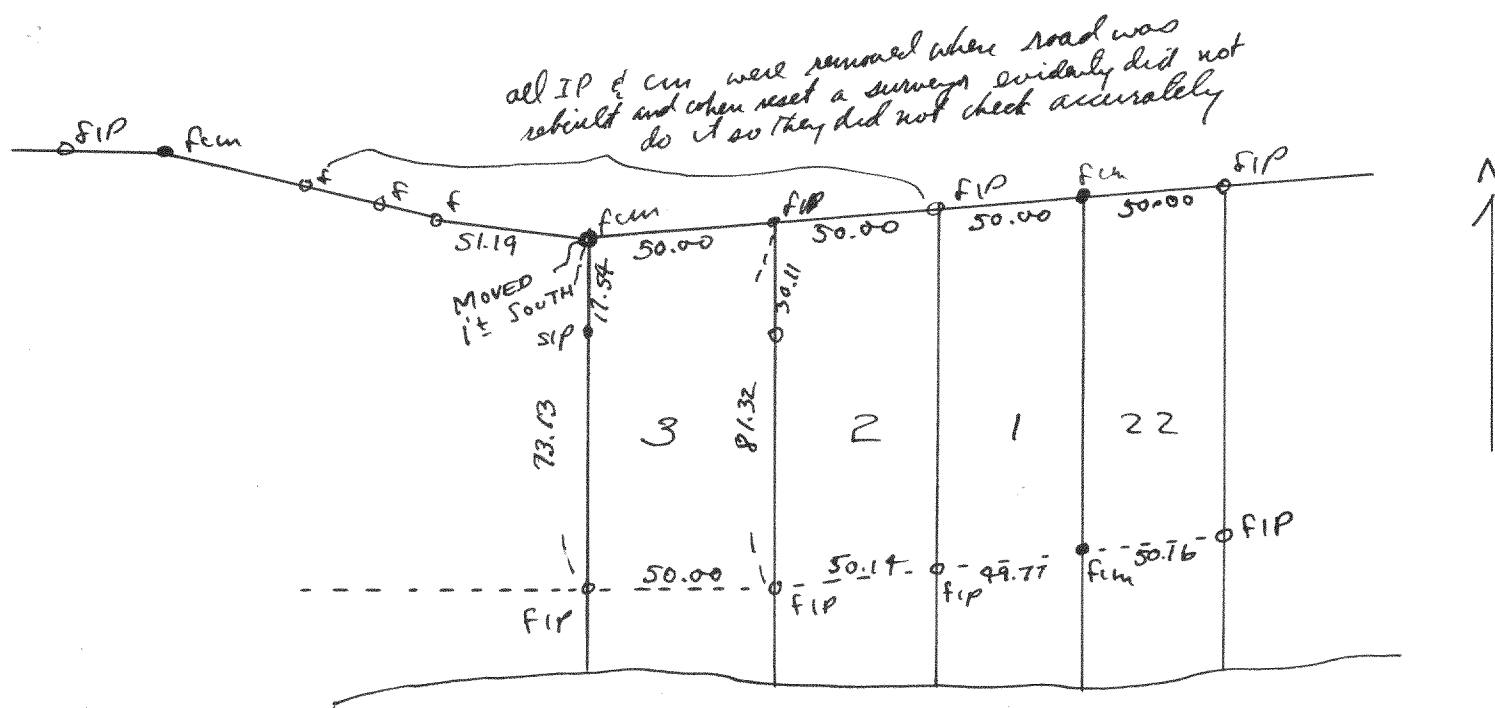 all IP & cm were removed when road was
rebuilt and when reset a surveyor evidently did not
do it so they did not check accurately
fIP
fcm
f
f
f
51.19
fcm
50.00
fIP
50.00
fIP
50.00
fcm
50.00
fIP
N
MOVED
1'± SOUTH
17.54
SIP
30.11
73.13
3
81.32
2
1
22
50.00
fIP
50.14
fIP
49.77
fIP
fcm
50.16
fIP